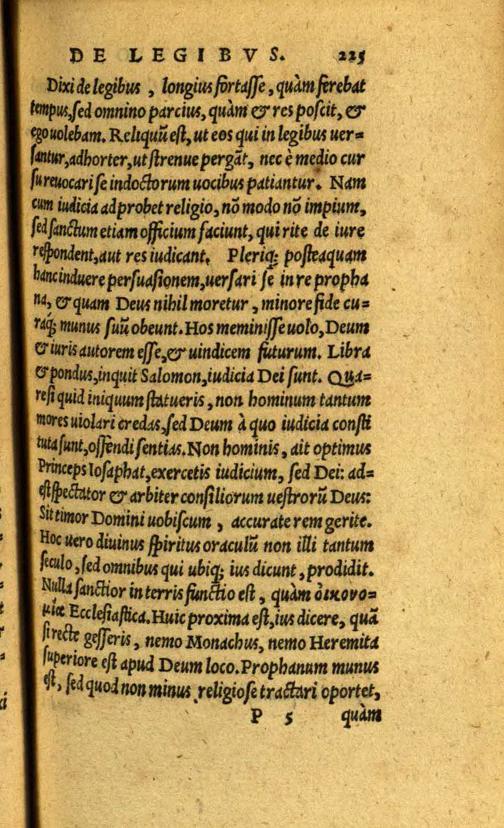 DE LEGIBVS. 225
Dixi de legibus, longius fortasse, quàm ferebat
tempus, sed omnino parcius, quàm & res poscit, &
ego uolebam. Reliquũ est, ut eos qui in legibus uer=
santur, adhorter, ut strenue pergãt, nec è medio cur
su reuocari se indoctorum uocibus patiantur. Nam
cum iudicia ad probet religio, nõ modo nõ impium,
sed sanctum etiam officium faciunt, qui rite de iure
respondent, aut res iudicant. Pleriq; posteaquam
hanc induere persuasionem, uersari se in re propha
na, & quam Deus nihil moretur, minore fide cu=
raq; munus suũ obeunt. Hos meminisse uolo, Deum
& iuris autorem esse, & uindicem futurum. Libra
& pondus, inquit Salomon, iudicia Dei sunt. Qua=
re si quid iniquum statueris, non hominum tantum
mores uiolari credas, sed Deum à quo iudicia consti
tuta sunt, offendi sentias. Non hominis, ait optimus
Princeps Iosaphat, exercetis iudicium, sed Dei: ad=
est spectator & arbiter consiliorum uestrorũ Deus:
Sit timor Domini uobiscum, accurate rem gerite.
Hoc uero diuinus spiritus oraculũ non illi tantum
seculo, sed omnibus qui ubiq; ius dicunt, prodidit.
Nulla sanctior in terris functio est, quàm οἰκονο=
μίας Ecclesiastica. Huic proxima est, ius dicere, quã
si recte gesseris, nemo Monachus, nemo Heremita
superiore est apud Deum loco. Prophanum munus
est, sed quod non minus religiose tractari oportet,
P 5 quàm